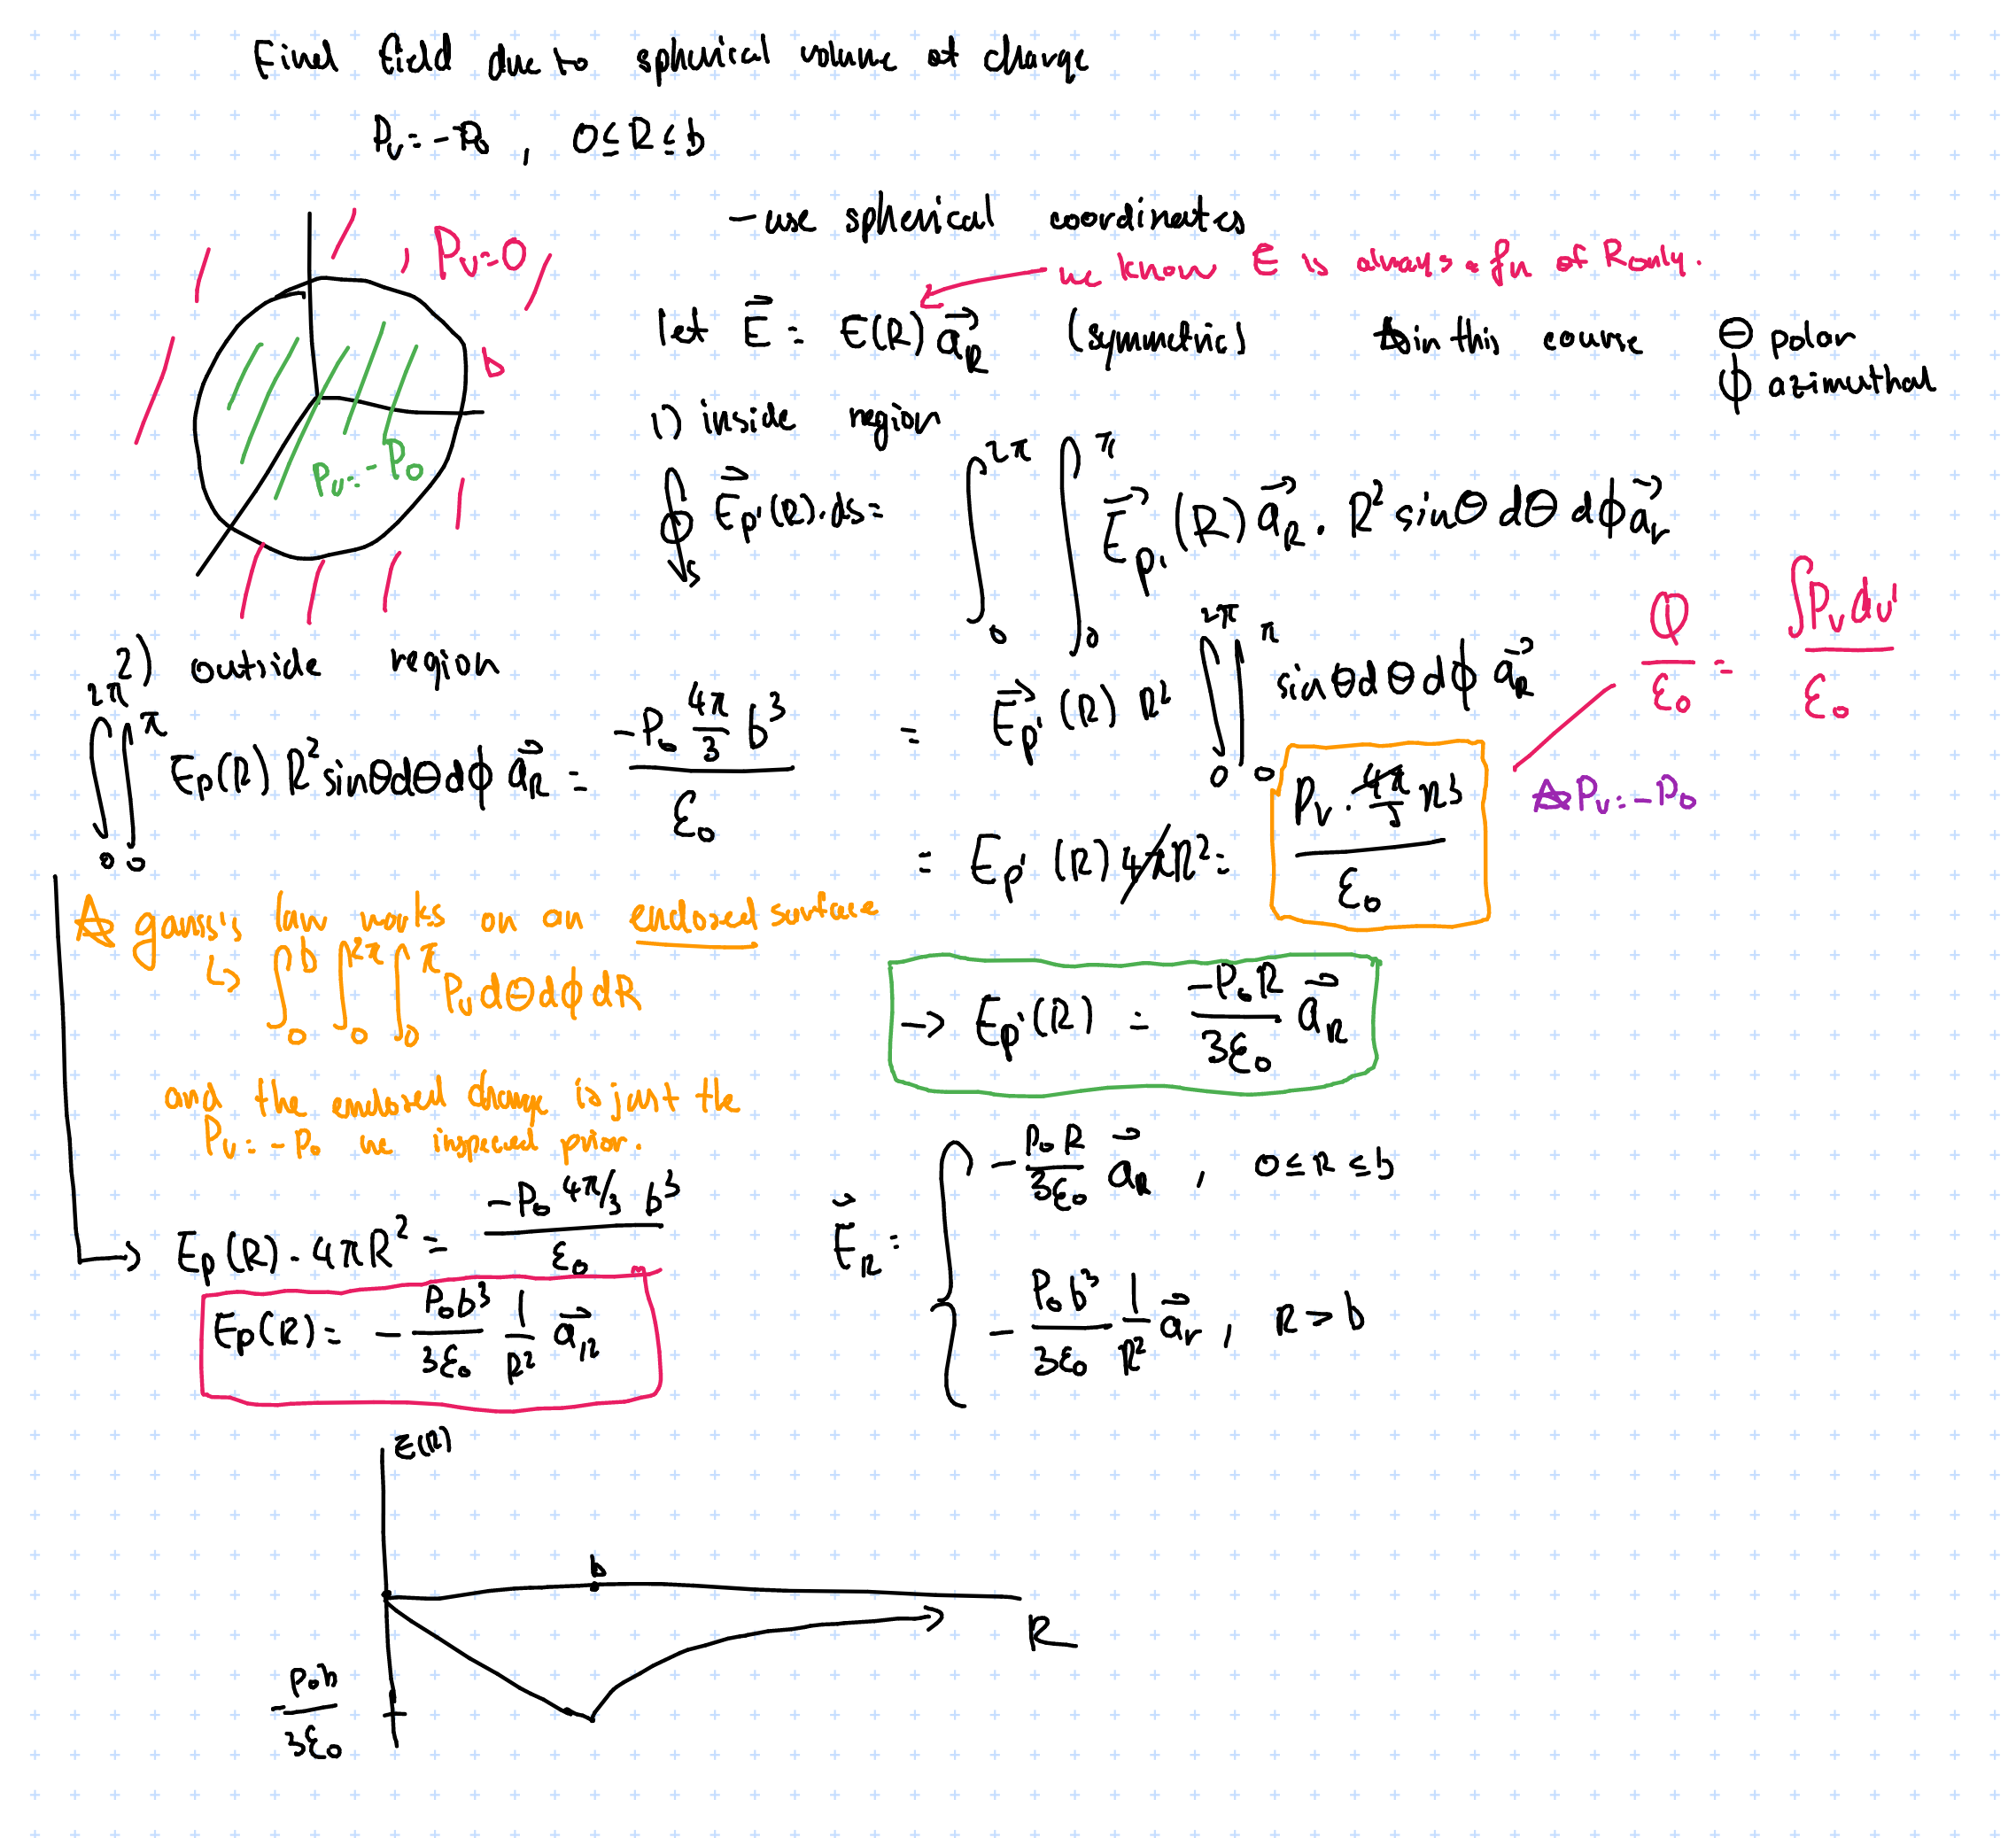 Find field due to spherical volume of charge
ρᵥ = -ρ₀ , 0 ≤ R ≤ b
- use spherical coordinates
ρᵥ = 0
we know E is always a fn of R only.
let E⃗ = E(R) a⃗_R (symmetric)
☆ in this course θ polar
ϕ azimuthal
b
ρᵥ = -ρ₀
1) inside region
∮_S E⃗_p'(R) · ds = ∫₀^2π ∫₀^π E⃗_p'(R) a⃗_R · R² sinθ dθ dϕ a⃗_r
= E⃗_p'(R) R² ∫₀^2π ∫₀^π sinθ dθ dϕ a⃗_R
Q/ε₀ = ∫ρᵥ dv'/ε₀
= E_p'(R) 4πR² = ρᵥ · 4π/3 R³ / ε₀
☆ ρᵥ = -ρ₀
→ E_p'(R) = -ρ₀R/3ε₀ a⃗_R
2) outside region
∫₀^2π ∫₀^π E_p(R) R² sinθ dθ dϕ a⃗_R = -ρ₀ 4π/3 b³ / ε₀
☆ gauss's law works on an enclosed surface
↳ ∫₀^b ∫₀^2π ∫₀^π ρᵥ dθ dϕ dR
and the enclosed charge is just the
ρᵥ = -ρ₀ we inspected prior.
→ E_p(R) · 4πR² = -ρ₀ 4π/3 b³ / ε₀
E_p(R) = - ρ₀b³/3ε₀ 1/R² a⃗_R
E⃗_R = { - ρ₀R/3ε₀ a⃗_R , 0 ≤ R ≤ b
- ρ₀b³/3ε₀ 1/R² a⃗_r , R > b
E(R)
b
R
- ρ₀b/3ε₀